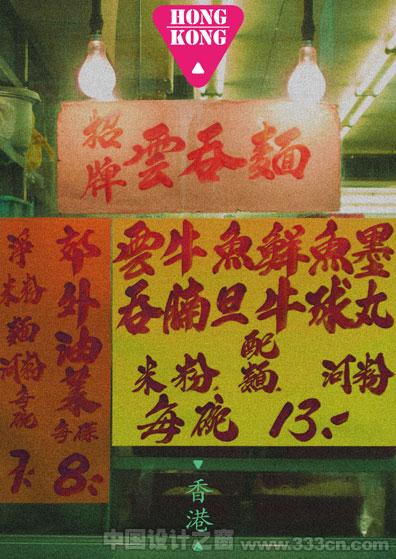 HONG
KONG
招牌
雲吞麵
郊外油菜
每碟
8.-
淨
米粉
麵
河粉
每碗
7.-
雲吞
牛腩
魚旦
鮮牛
魚球
墨丸
配
米粉. 麵. 河粉
每碗 13.-
香港
中国设计之窗
www.333cn.com